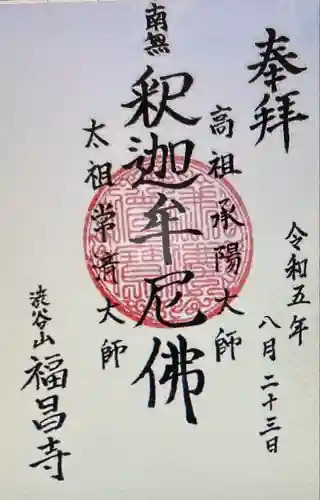 奉拝
令和五年
八月二十三日
高祖承陽大師
南無
釈迦牟尼佛
太祖常済大師
渋谷山
福昌寺